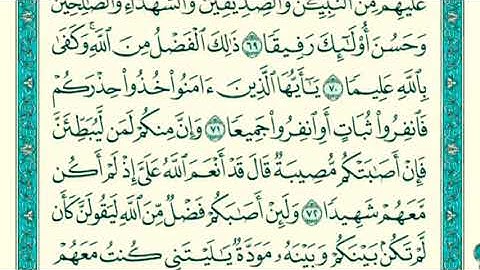 عَلَيْهِم مِّنَ ٱلنَّبِيِّـۧنَ وَٱلصِّدِّيقِينَ وَٱلشُّهَدَآءِ وَٱلصَّـٰلِحِينَ
وَحَسُنَ أُو۟لَـٰٓئِكَ رَفِيقًا ٦٩ ذَٰلِكَ ٱلْفَضْلُ مِنَ ٱللَّهِ ۚ وَكَفَىٰ
بِٱللَّهِ عَلِيمًا ٧٠ يَـٰٓأَيُّهَا ٱلَّذِينَ ءَامَنُوا۟ خُذُوا۟ حِذْرَكُمْ
فَٱنفِرُوا۟ ثُبَاتٍ أَوِ ٱنفِرُوا۟ جَمِيعًا ٧١ وَإِنَّ مِنكُمْ لَمَن لَّيُبَطِّئَنَّ
فَإِنْ أَصَـٰبَتْكُم مُّصِيبَةٌ قَالَ قَدْ أَنْعَمَ ٱللَّهُ عَلَىَّ إِذْ لَمْ أَكُن
مَّعَهُمْ شَهِيدًا ٧٢ وَلَئِنْ أَصَـٰبَكُمْ فَضْلٌ مِّنَ ٱللَّهِ لَيَقُولَنَّ كَأَن
لَّمْ تَكُنۢ بَيْنَكُمْ وَبَيْنَهُۥ مَوَدَّةٌ يَـٰلَيْتَنِى كُنتُ مَعَهُمْ